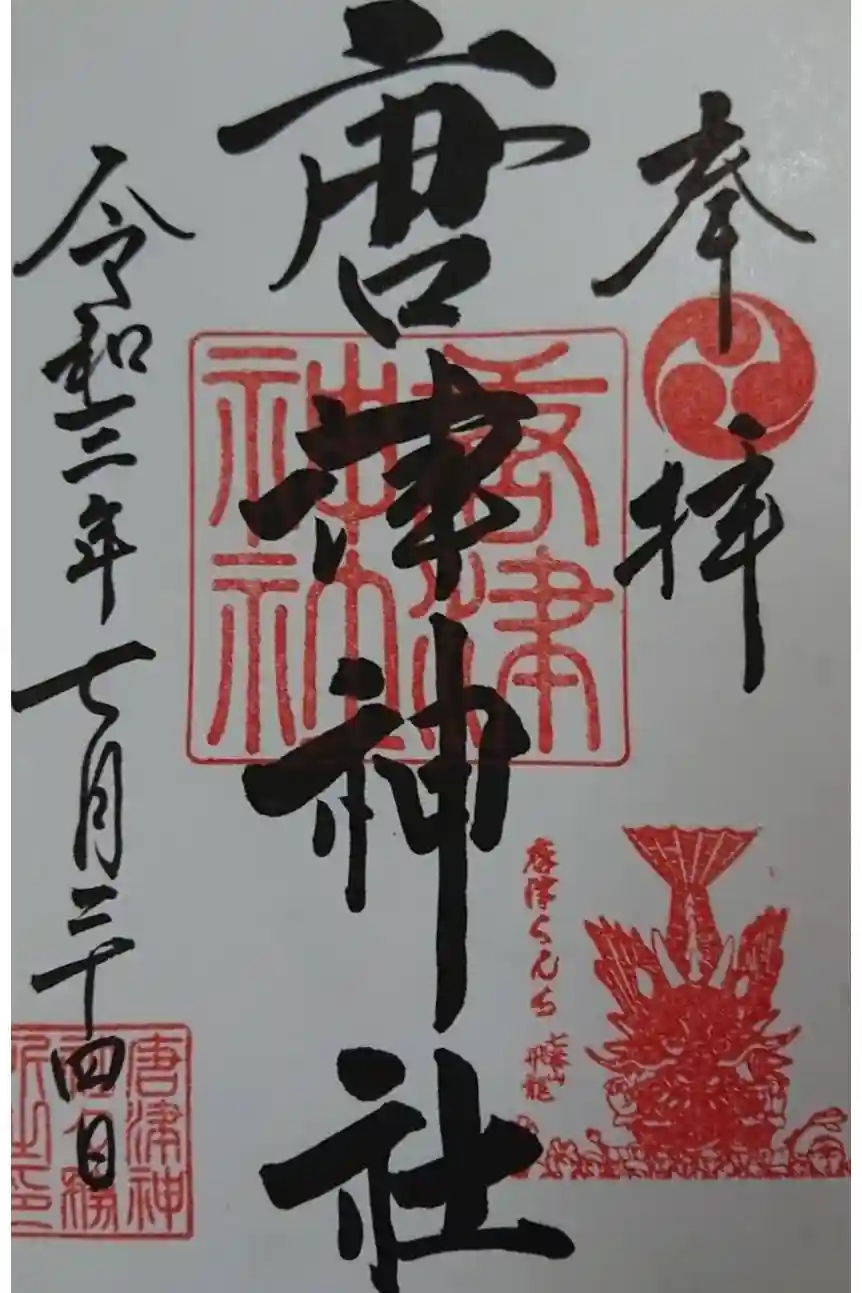 奉拝
唐津神社
唐津神社
唐津くんち
七番山
飛龍
令和三年七月二十四日
唐津神
社々務
所之印